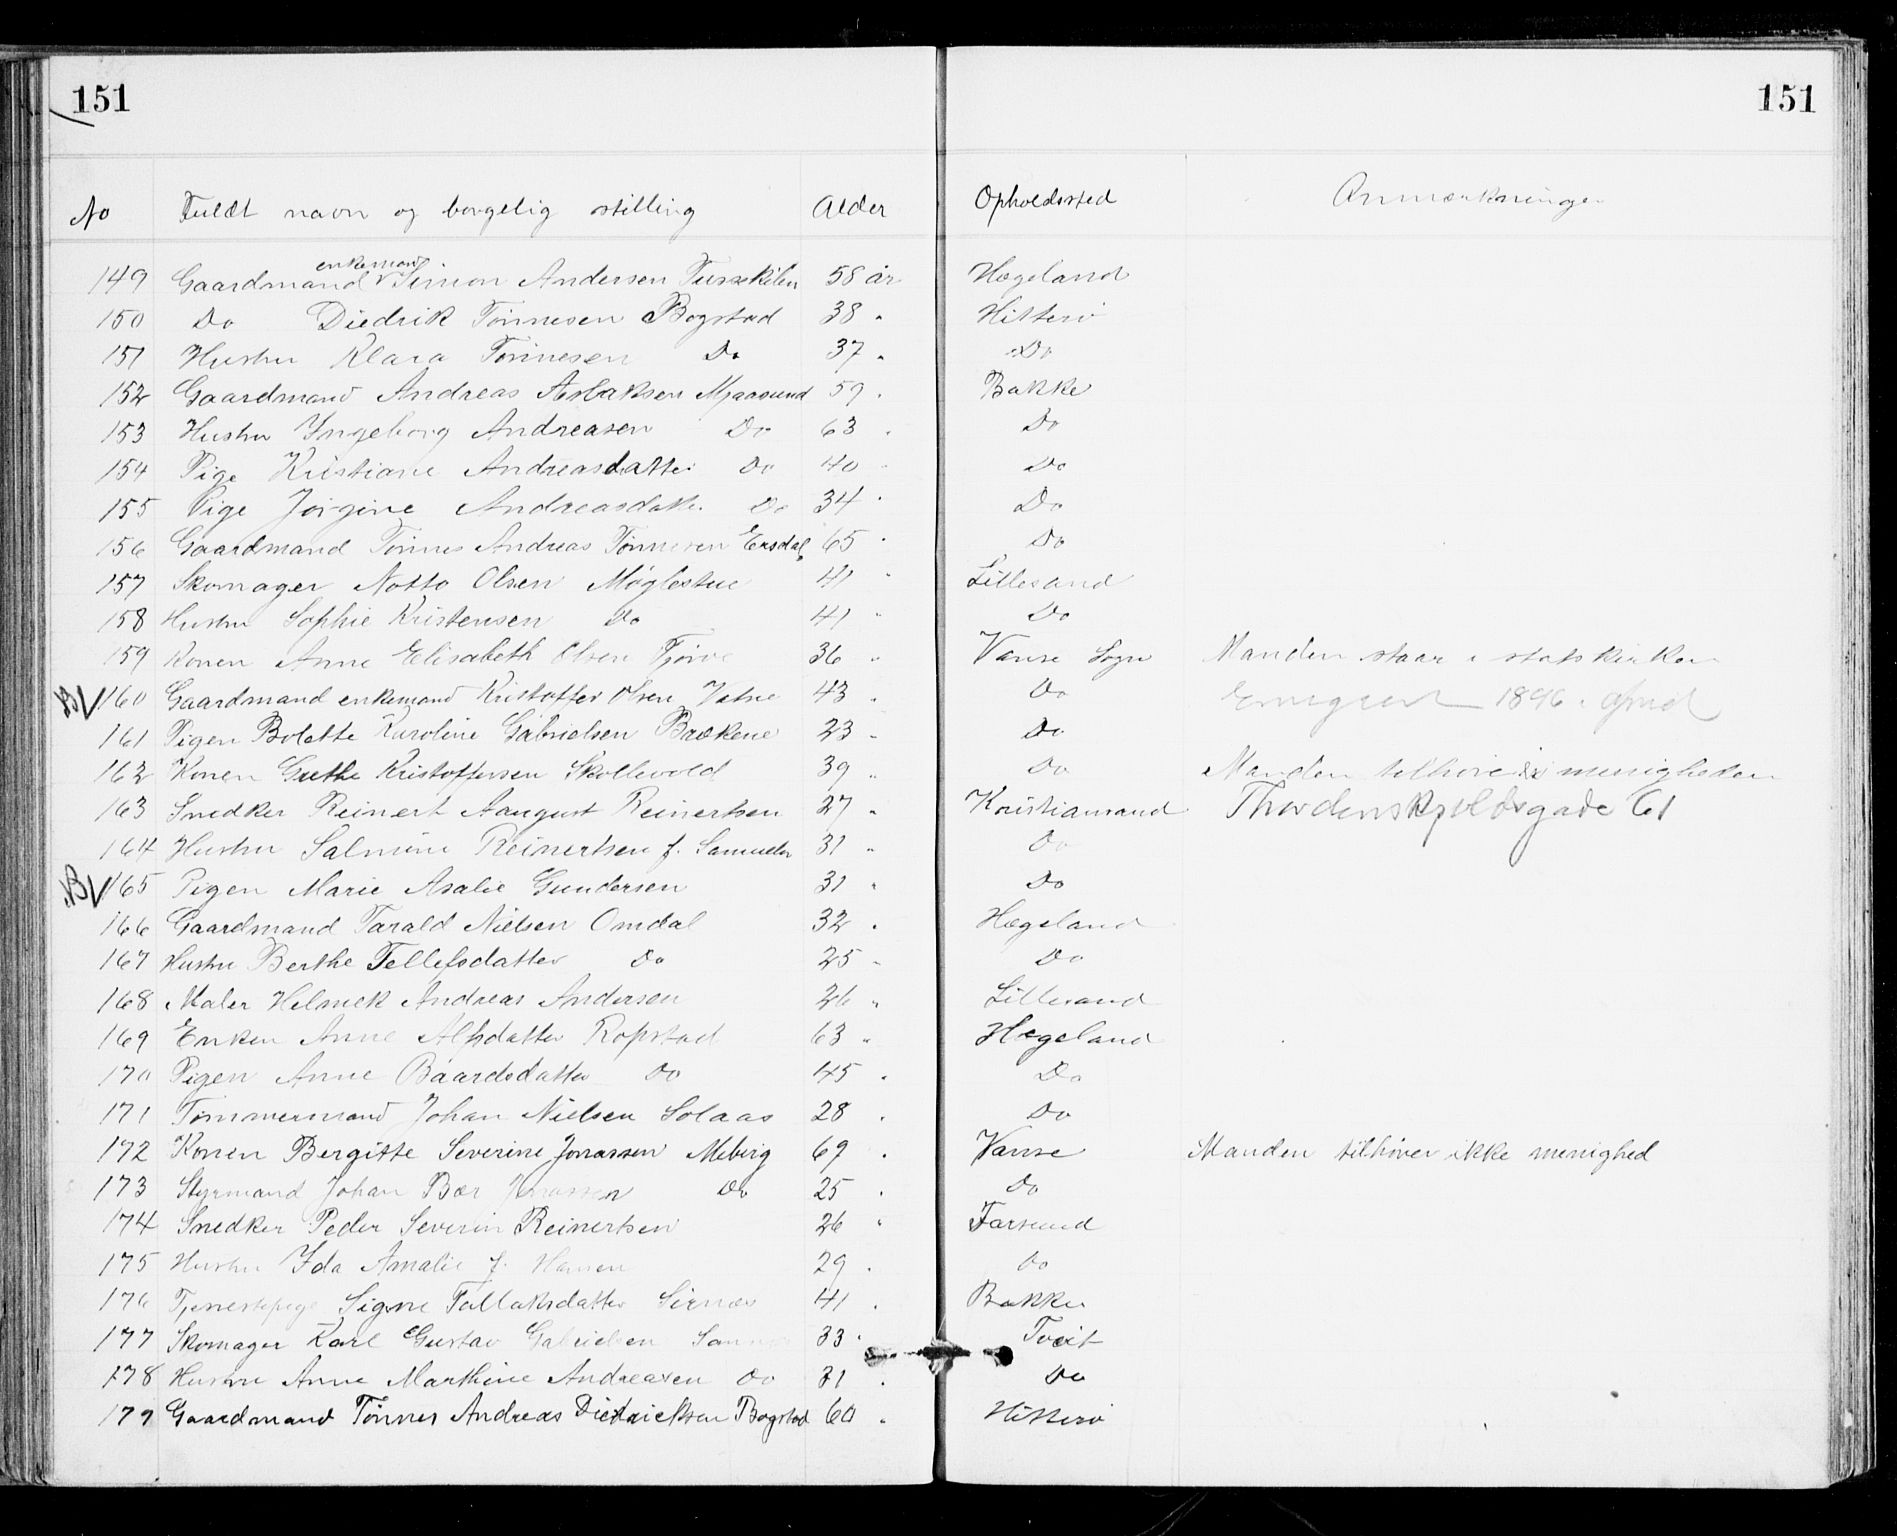 151 151
No Fuldt navn og borgelig stilling Alder Opholdssted Anmærkninger
enkemand
149 Gaardmand Simon Andersen Tusseki 58 år Hægeland
150 Do Diedrik Tønnesen Bogstad 38 " Hitterø
151 Hustru Klara Tønnesen Do 37 " Do
152 Gaardmand Andreas Aslaksen Mjaasund 59 " Bakke
153 Hustru Yngeborg Andreasen Do 63 " Do
154 Pige Kristiane Andreasdatter Do 40 " Do
155 Pige Jørgine Andreasdatt. Do 34 " Do
156 Gaardmand Tønnes Andreas Tønnesen Ersdal 65 " Do
157 Skomager Notto Olsen Møglestue 41 " Lillesand
158 Hustru Sophie Kristensen Do 41 " Do
159 Konen Anne Elisabeth Olsen Tjørve 36 " Vanse Sogn Manden staar i statskirken
BV 160 Gaardmand enkemand Kristoffer Olsen Vatne 43 " Do Emigreret 1896 . April
161 Pigen Bolette Karoline Gabrielsen Brækene 23 " Do
162 Konen Grethe Kristoffersen Skollevold 39 " Do Manden tilhører menigheden
163 Snedker Reinert Aaugust Reinertsen 27 " Kristiansand Thordenskjoldsgade 61
164 Hustru Salmine Reinertsen f. Samuelsn 31 " Do
BV 165 Pigen Marie Asalie Gundersen 31 " Do
166 Gaardmand Tarald Nielsen Omdal 32 " Hægeland
167 Hustru Berthe Tellefsdatter Do 25 " Do
168 Maler Helmek Andreas Andersen 26 " Lillesand
169 Enken Anne Alfsdatter Ropstad 63 " Hægeland
170 Pigen Anne Baardsdatter Do 45 " Do
171 Tømmermand Johan Nielsen Solaas 28 " Do
172 Konen Bergitte Severine Jonassen Meberg 69 " Vanse Manden tilhører ikke menighed
173 Styrmand Johan Bær Jonassen Do 25 " Do
174 Snedker Peder Severin Reinertsen 26 " Farsund
175 Hustru Ida Amalie f. Hansen 29 " Do
176 Tjenestepige Signe Tallaksdatter Sirnæs 41 " Bakke
177 Skomager Karl Gustav Gabrielsen 33 " Tveit
178 Hustru Anne Marthine Andreasen Do 31 " Do
179 Gaardmand Tønnes Andreas Diedricksen Bogstad 60 " Hitterø